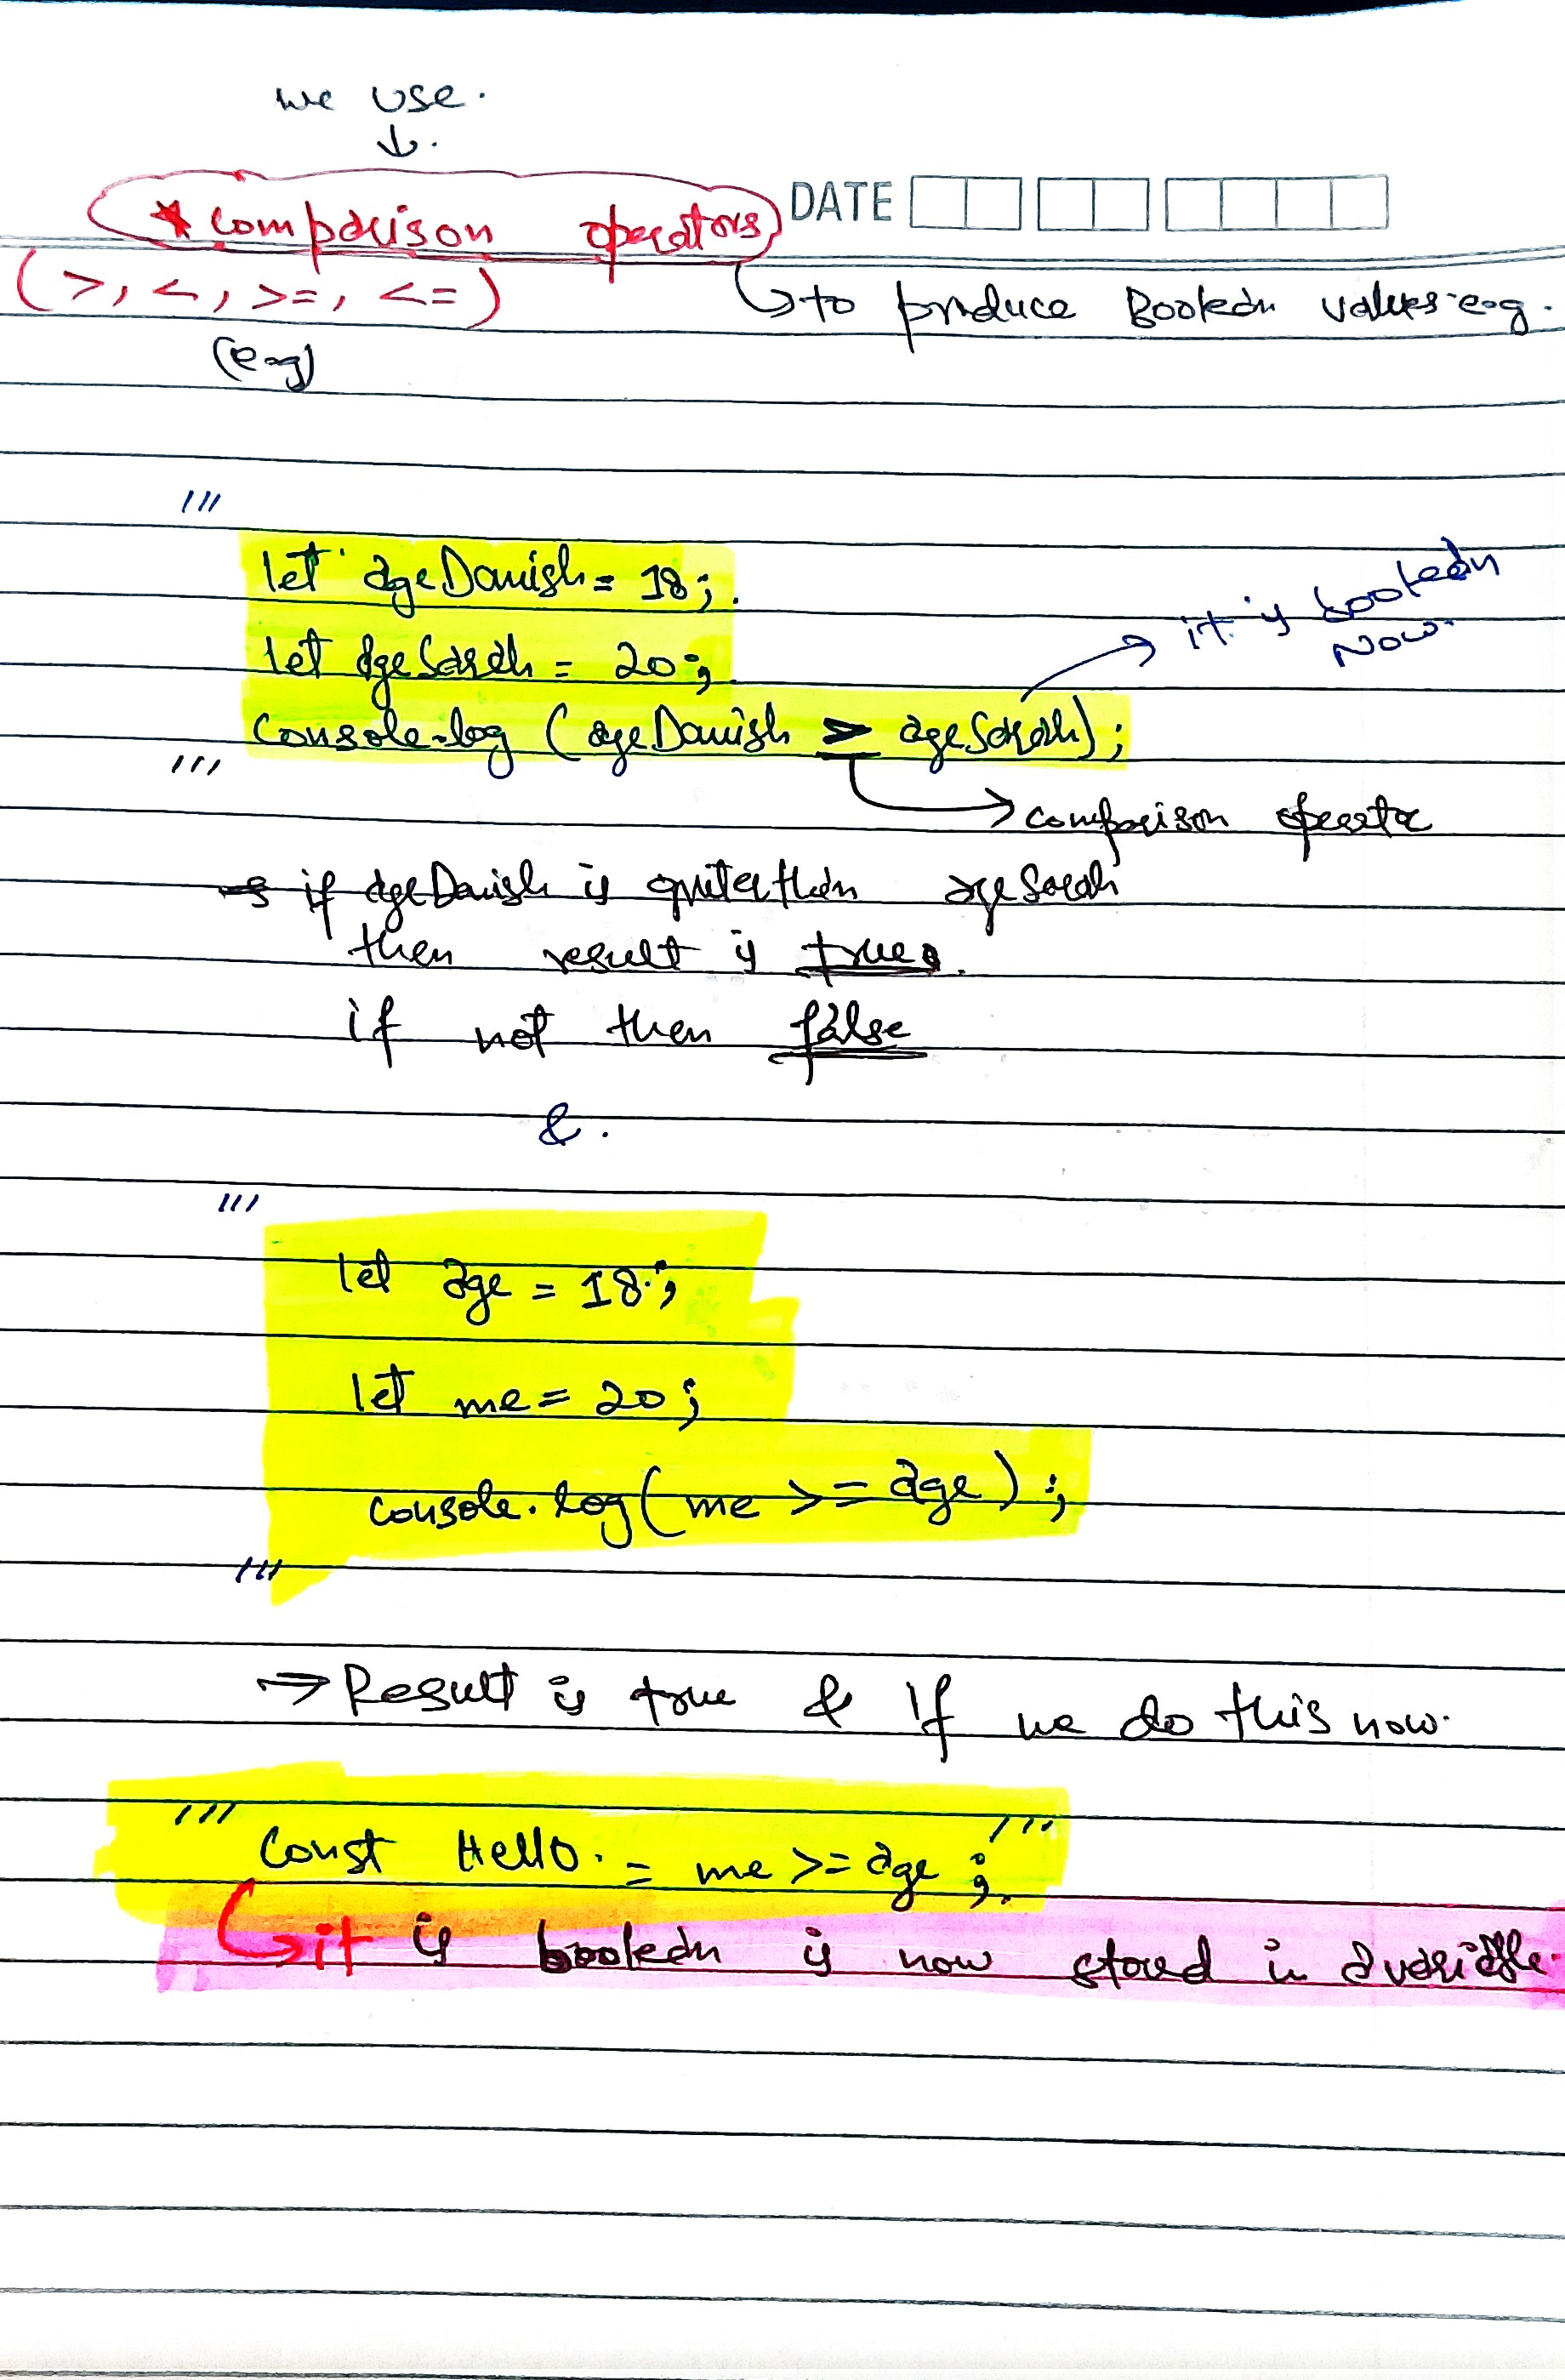 we use.
↓.
* Comparison operators
DATE
(>, <, >=, <=)
→ to produce Boolean values e.g.
(e.g)
'''
let ageDanish = 18;
let ageSarah = 20;
it is boolean
Now.
Console.log (ageDanish > ageSarah);
'''
→ comparison operator
→ if ageDanish is griter than ageSarah
then result is true.
if not then false
&.
'''
let age = 18;
let me = 20;
console.log(me >= age);
'''
→ Result is true & if we do this now.
''' Const Hello = me >= age; '''
→ it is boolean is now stored in a variable.